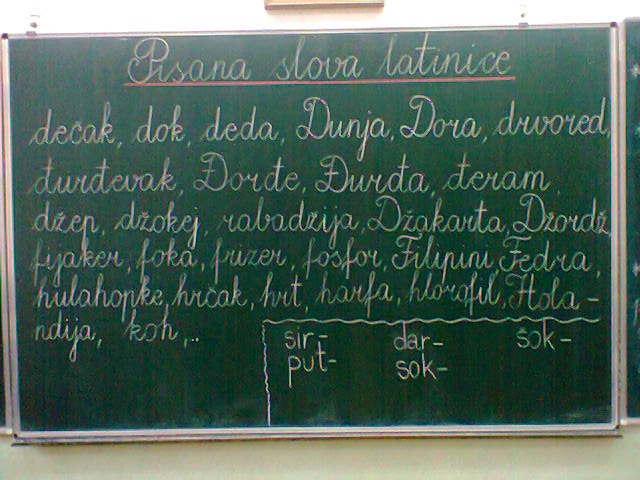 Pisana slova latinice
dečak, dok, deda, Dunja, Dora, drvored,
đurđevak, Đorđe, Đurđa, đeram,
džep, džokej, rabadžija, Džakarta, Džordž,
fijaker, foka, frizer, fosfor, Filipini, Fedra,
hulahopke, hrčak, hrt, harfa, hlorofil, Hola-
ndija, koh,..
sir- dar- šok-
put- sok-